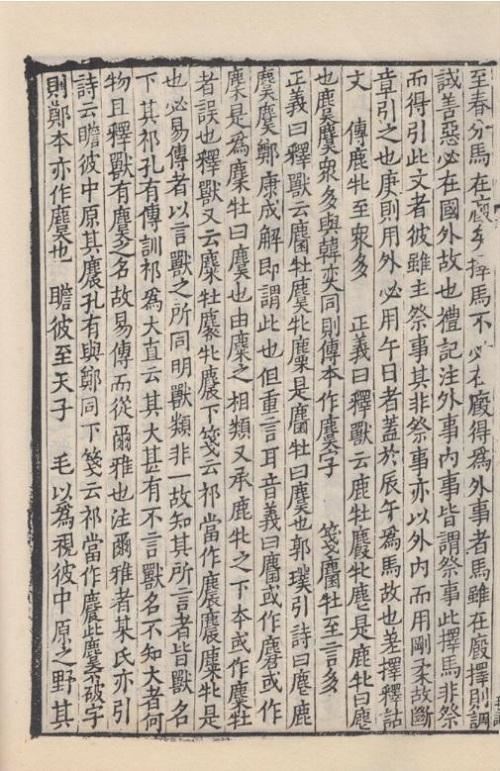 至春分馬在廄矣擇馬不必在廄得爲外事者馬雖在廄擇則調
誠善惡必在國外故也禮記注外事内事皆謂祭事此擇馬非祭
而得引此文者彼雖主祭事其非祭事亦以外内而用剛柔故斷
章引之也庚則用外必用午日者蓋於辰午爲馬故也差擇釋詁
文　傳鹿牝至衆多　正義曰釋獸云鹿牡麚牝麀是鹿牝曰麀
也麌麌衆多與韓奕同則傳本作麌字　箋麕牡至言多
正義曰釋獸云麕牡麌牝麜是麕牡曰麌也郭璞引詩曰麀鹿
麌麌鄭康成解即謂此也但重言耳音義曰麕或作麏或作
麇是爲麇牡曰麌也由麇之相類又承鹿牝之下本或作麇牡
者誤也釋獸又云麋牡麔牝麎下箋云祁當作麎麎麋牝是
也必易傳者以言獸之所同明獸類非一故知其所言者皆獸名
下其祁孔有傳訓祁爲大直云其大甚有不言獸名不知大者何
物且釋獸有麌之名故易傳而從爾雅也注爾雅者某氏亦引
詩云瞻彼中原其麎孔有與鄭同下箋云祁當作麎此麌不破字
則鄭本亦作麌也　瞻彼至天子　毛以爲視彼中原之野其